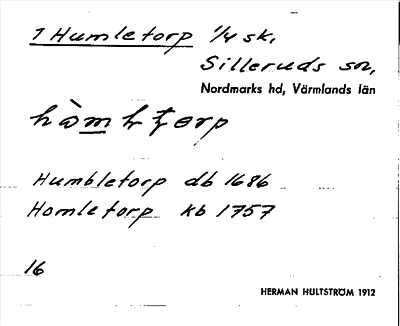 1 Humletorp 1/4 sk,
Silleruds sn,
Nordmarks hd, Värmlands län
Humbletorp db 1686
Homletorp kb 1757
16
HERMAN HULTSTRÖM 1912